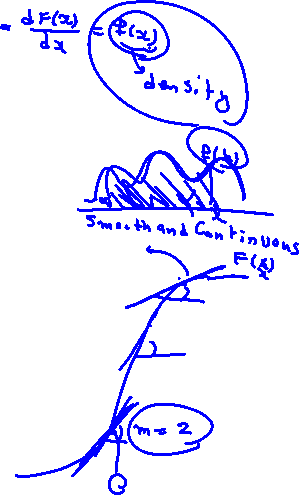 = dF(x)/dx = f(x)
density
f(x)
Smooth and Continuous
F(x)
m = 2